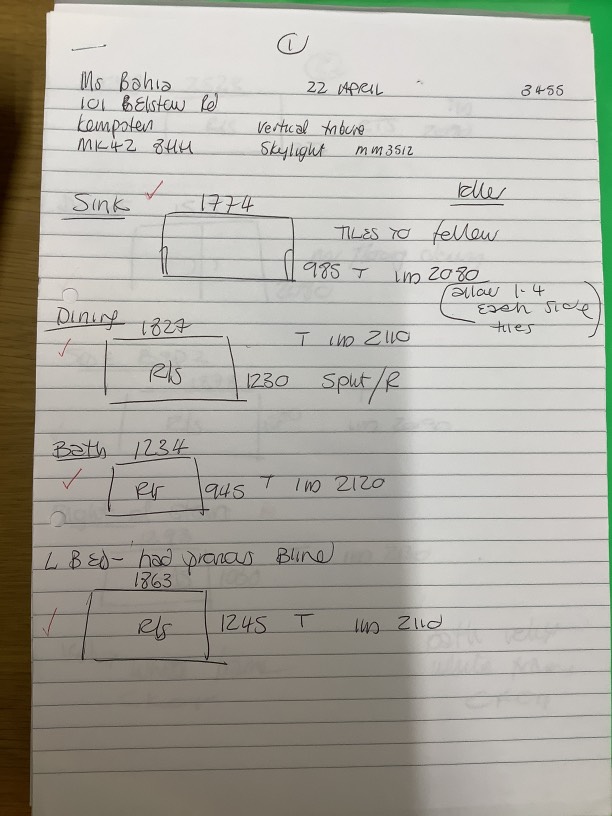 ①
Ms Bahia 22 APRIL 3455
101 BElstow Rd
Kempston Vertical
MK42 8HH Skylight MM3512
Sink 1774 Idler
TILES TO follow
985 T 2080
(allow 1-4
each side
tiles)
Dining 1827 T 2110
R/s 1230 Split/R
Bath 1234
R/s 945 T 2120
L BEd - had Blind
1863
R/s 1245 T 2110